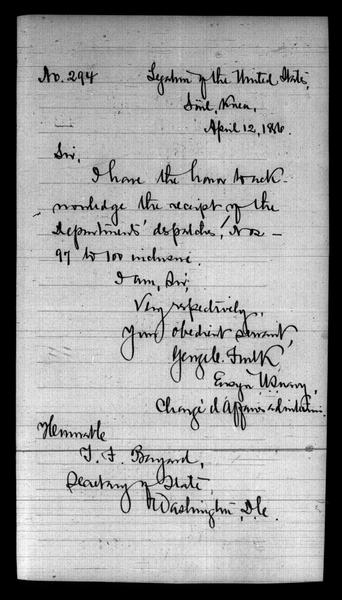 No. 294 Legation of the United States,
Söul, Korea,
April 12, 1886.
Sir,
I have the honor to ack-
nowledge the receipt of the
Departments' dispatches, Nos –
97 to 100 inclusive.
I am, Sir,
Very respectfully,
Your obedient servant,
George C. Foulk
Ensign U.S. Navy,
Chargé d'Affaires ad interim.
Honorable
T. F. Bayard,
Secretary of State,
Washington, D.C.